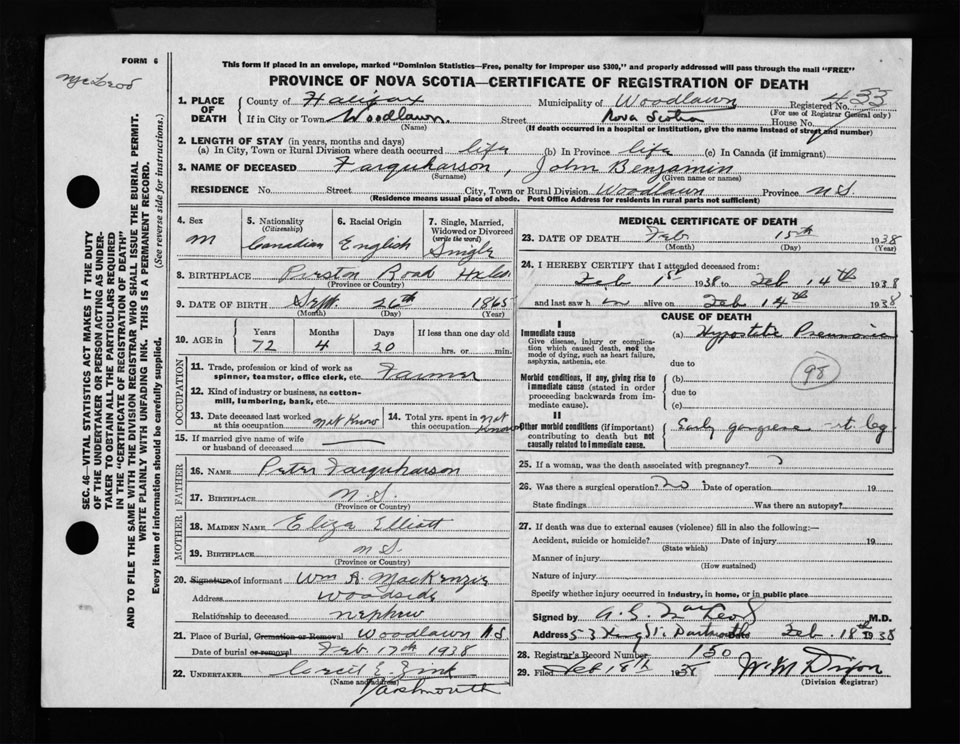 FORM 6
McLeod
This form if placed in an envelope, marked "Dominion Statistics—Free, penalty for improper use $300," and properly addressed will pass through the mail "FREE"
PROVINCE OF NOVA SCOTIA—CERTIFICATE OF REGISTRATION OF DEATH
1. PLACE OF DEATH { County of Halifax Municipality of Woodlawn Registered No. 433
(For use of Registrar General only)
If in City or Town Woodlawn. Street Nova Scotia House No.
(Name) (If death occurred in a hospital or institution, give the name instead of street and number)
2. LENGTH OF STAY (in years, months and days)
(a) In City, Town or Rural Division where death occurred life (b) In Province life (c) In Canada (if immigrant)
3. NAME OF DECEASED Farquharson, John Benjamin
(Surname) (Given name or names)
RESIDENCE No. Street City, Town or Rural Division Woodlawn Province N.S.
(Residence means usual place of abode. Post Office Address for residents in rural parts not sufficient)
4. Sex M
5. Nationality (Citizenship) Canadian
6. Racial Origin English
7. Single, Married, Widowed or Divorced (write the word) Single
8. BIRTHPLACE Preston Road Hxls
(Province or Country)
9. DATE OF BIRTH Sept. 26th 1865
(Month) (Day) (Year)
10. AGE in Years 72 Months 4 Days 20 If less than one day old hrs. or min.
OCCUPATION
11. Trade, profession or kind of work as spinner, teamster, office clerk, etc. Farmer
12. Kind of industry or business, as cotton-mill, lumbering, bank, etc.
13. Date deceased last worked at this occupation Not Know
14. Total yrs. spent in this occupation Not Know
15. If married give name of wife or husband of deceased
FATHER
16. NAME Peter Farquharson
17. BIRTHPLACE N.S.
(Province or Country)
MOTHER
18. MAIDEN NAME Eliza Elliott
19. BIRTHPLACE N.S.
(Province or Country)
20. Signature of informant Wm A. MacKenzie
Address Woodside
Relationship to deceased nephew
21. Place of Burial, Cremation or Removal Woodlawn N.S.
Date of burial or removal Feb. 17th 1938
22. UNDERTAKER Cecil E. Zink
(Name and Address)
Dartmouth
MEDICAL CERTIFICATE OF DEATH
23. DATE OF DEATH Feb 15th 1938
(Month) (Day) (Year)
24. I HEREBY CERTIFY that I attended deceased from:
Feb 1st 1938 to Feb 14th 1938
and last saw h im alive on Feb 14th 1938
CAUSE OF DEATH
I
Immediate cause (a) Hypostatic Pneumonia
Give disease, injury or complication which caused death, not the mode of dying, such as heart failure, asphyxia, asthenia, etc. due to
98
Morbid conditions, if any, giving rise to immediate cause (stated in order proceeding backwards from immediate cause). (b)
due to
(c)
II
Other morbid conditions (if important) contributing to death but not causally related to immediate cause. Early gangrene rt leg
25. If a woman, was the death associated with pregnancy?
26. Was there a surgical operation? no Date of operation 19
State findings Was there an autopsy?
27. If death was due to external causes (violence) fill in also the following:—
Accident, suicide or homicide? Date of injury 19
(State which)
Manner of injury
(How sustained)
Nature of injury
Specify whether injury occurred in industry, in home, or in public place
Signed by M.D.
Address 53 King St. Dartmouth Feb. 18th 1938
28. Registrar's Record Number 150
29. Filed Feb 18th 1938 W. M Dixon
(Division Registrar)
SEC. 46—VITAL STATISTICS ACT MAKES IT THE DUTY
OF THE UNDERTAKER OR PERSON ACTING AS UNDER-
TAKER TO OBTAIN ALL THE PARTICULARS REQUIRED
IN THE "CERTIFICATE OF REGISTRATION OF DEATH"
AND TO FILE THE SAME WITH THE DIVISION REGISTRAR WHO SHALL ISSUE THE BURIAL PERMIT.
WRITE PLAINLY WITH UNFADING INK. THIS IS A PERMANENT RECORD.
Every item of information should be carefully supplied. (See reverse side for instructions.)